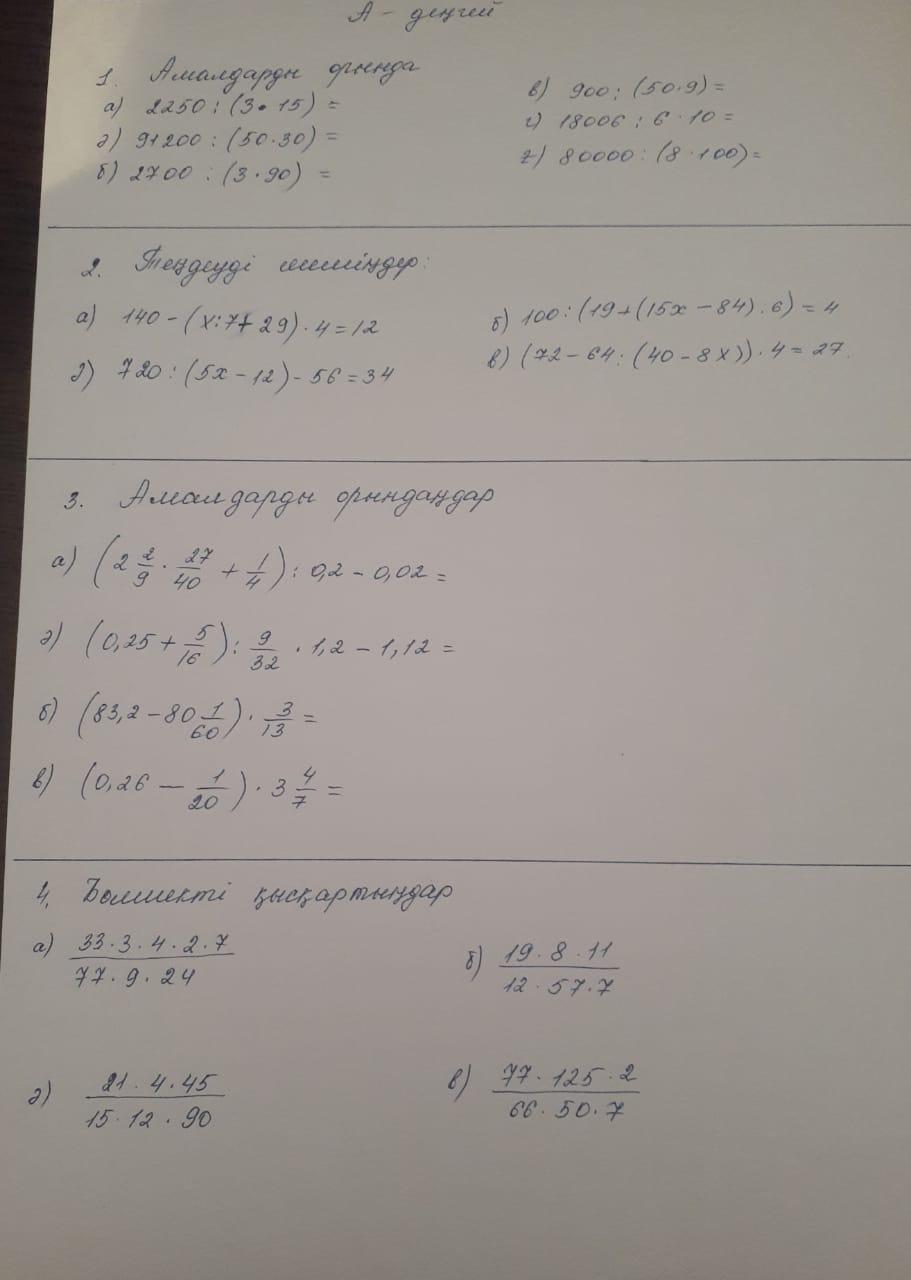 А - деңгей
1. Амалдарды орында
а) 2250 : (3 · 15) =
ә) 91200 : (50·30) =
б) 2700 : (3·90) =
в) 900 : (50·9) =
г) 18006 : 6 · 10 =
ғ) 80000 : (8·100) =
2. Теңдеуді шешіңдер:
а) 140 - (x:7+29)·4=12
ә) 720 : (5x-12) - 56 = 34
б) 100 : (19+(15x-84)·6) = 4
в) (72-64:(40-8x))·4=27.
3. Амалдарды орындаңдар
а) (2 2/9 · 27/40 + 1/4) : 0,2 - 0,02 =
ә) (0,25 + 5/16) : 9/32 · 1,2 - 1,12 =
б) (83,2 - 80 1/60) · 3/13 =
в) (0,26 - 1/20) · 3 4/7 =
4. Бөлшекті қысқартыңдар
а) 33·3·4·2·7
77·9·24
б) 19·8·11
12·57·7
ә) 21·4·45
15·12·90
в) 77·125·2
66·50·7